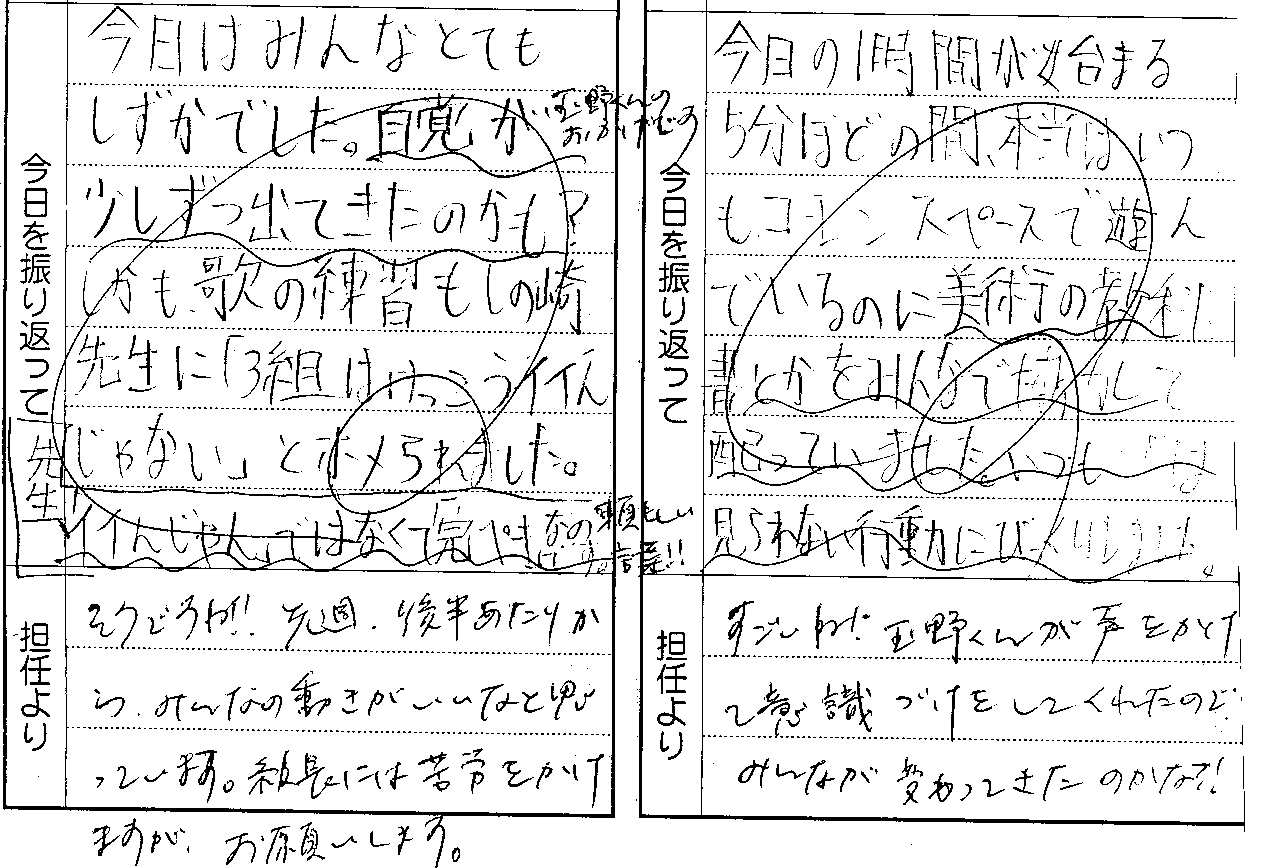 今日を振り返って
今日はみんなとても
しずかでした。自覚が
玉野くんの
おかげでの
少しずつ出てきたのかも?
しかも、歌の練習もしの崎
先生に「3組はけっこうイイん
じゃない」とホメられました。
先生!
イイんじゃん」ではなくて完ペきなの
頼もしい
言葉!!
担任より
そうどうね!! 先週、後半あたりか
ら、みんなの動きがいいなと思
っています。組長には苦労をかけ
ますが、お願いします。
今日を振り返って
今日の1時間が始まる
5分ほどの間、本当はいつ
もコモンスペースで遊ん
でいるのに美術の教科
書とかをみんなで協力して
配っていました。ふつうでは
見られない行動にびっくりし
担任より
すごいね!! 玉野くんが声をかけ
て意識づけをしてくれたので
みんなが変わってきたのかな?!